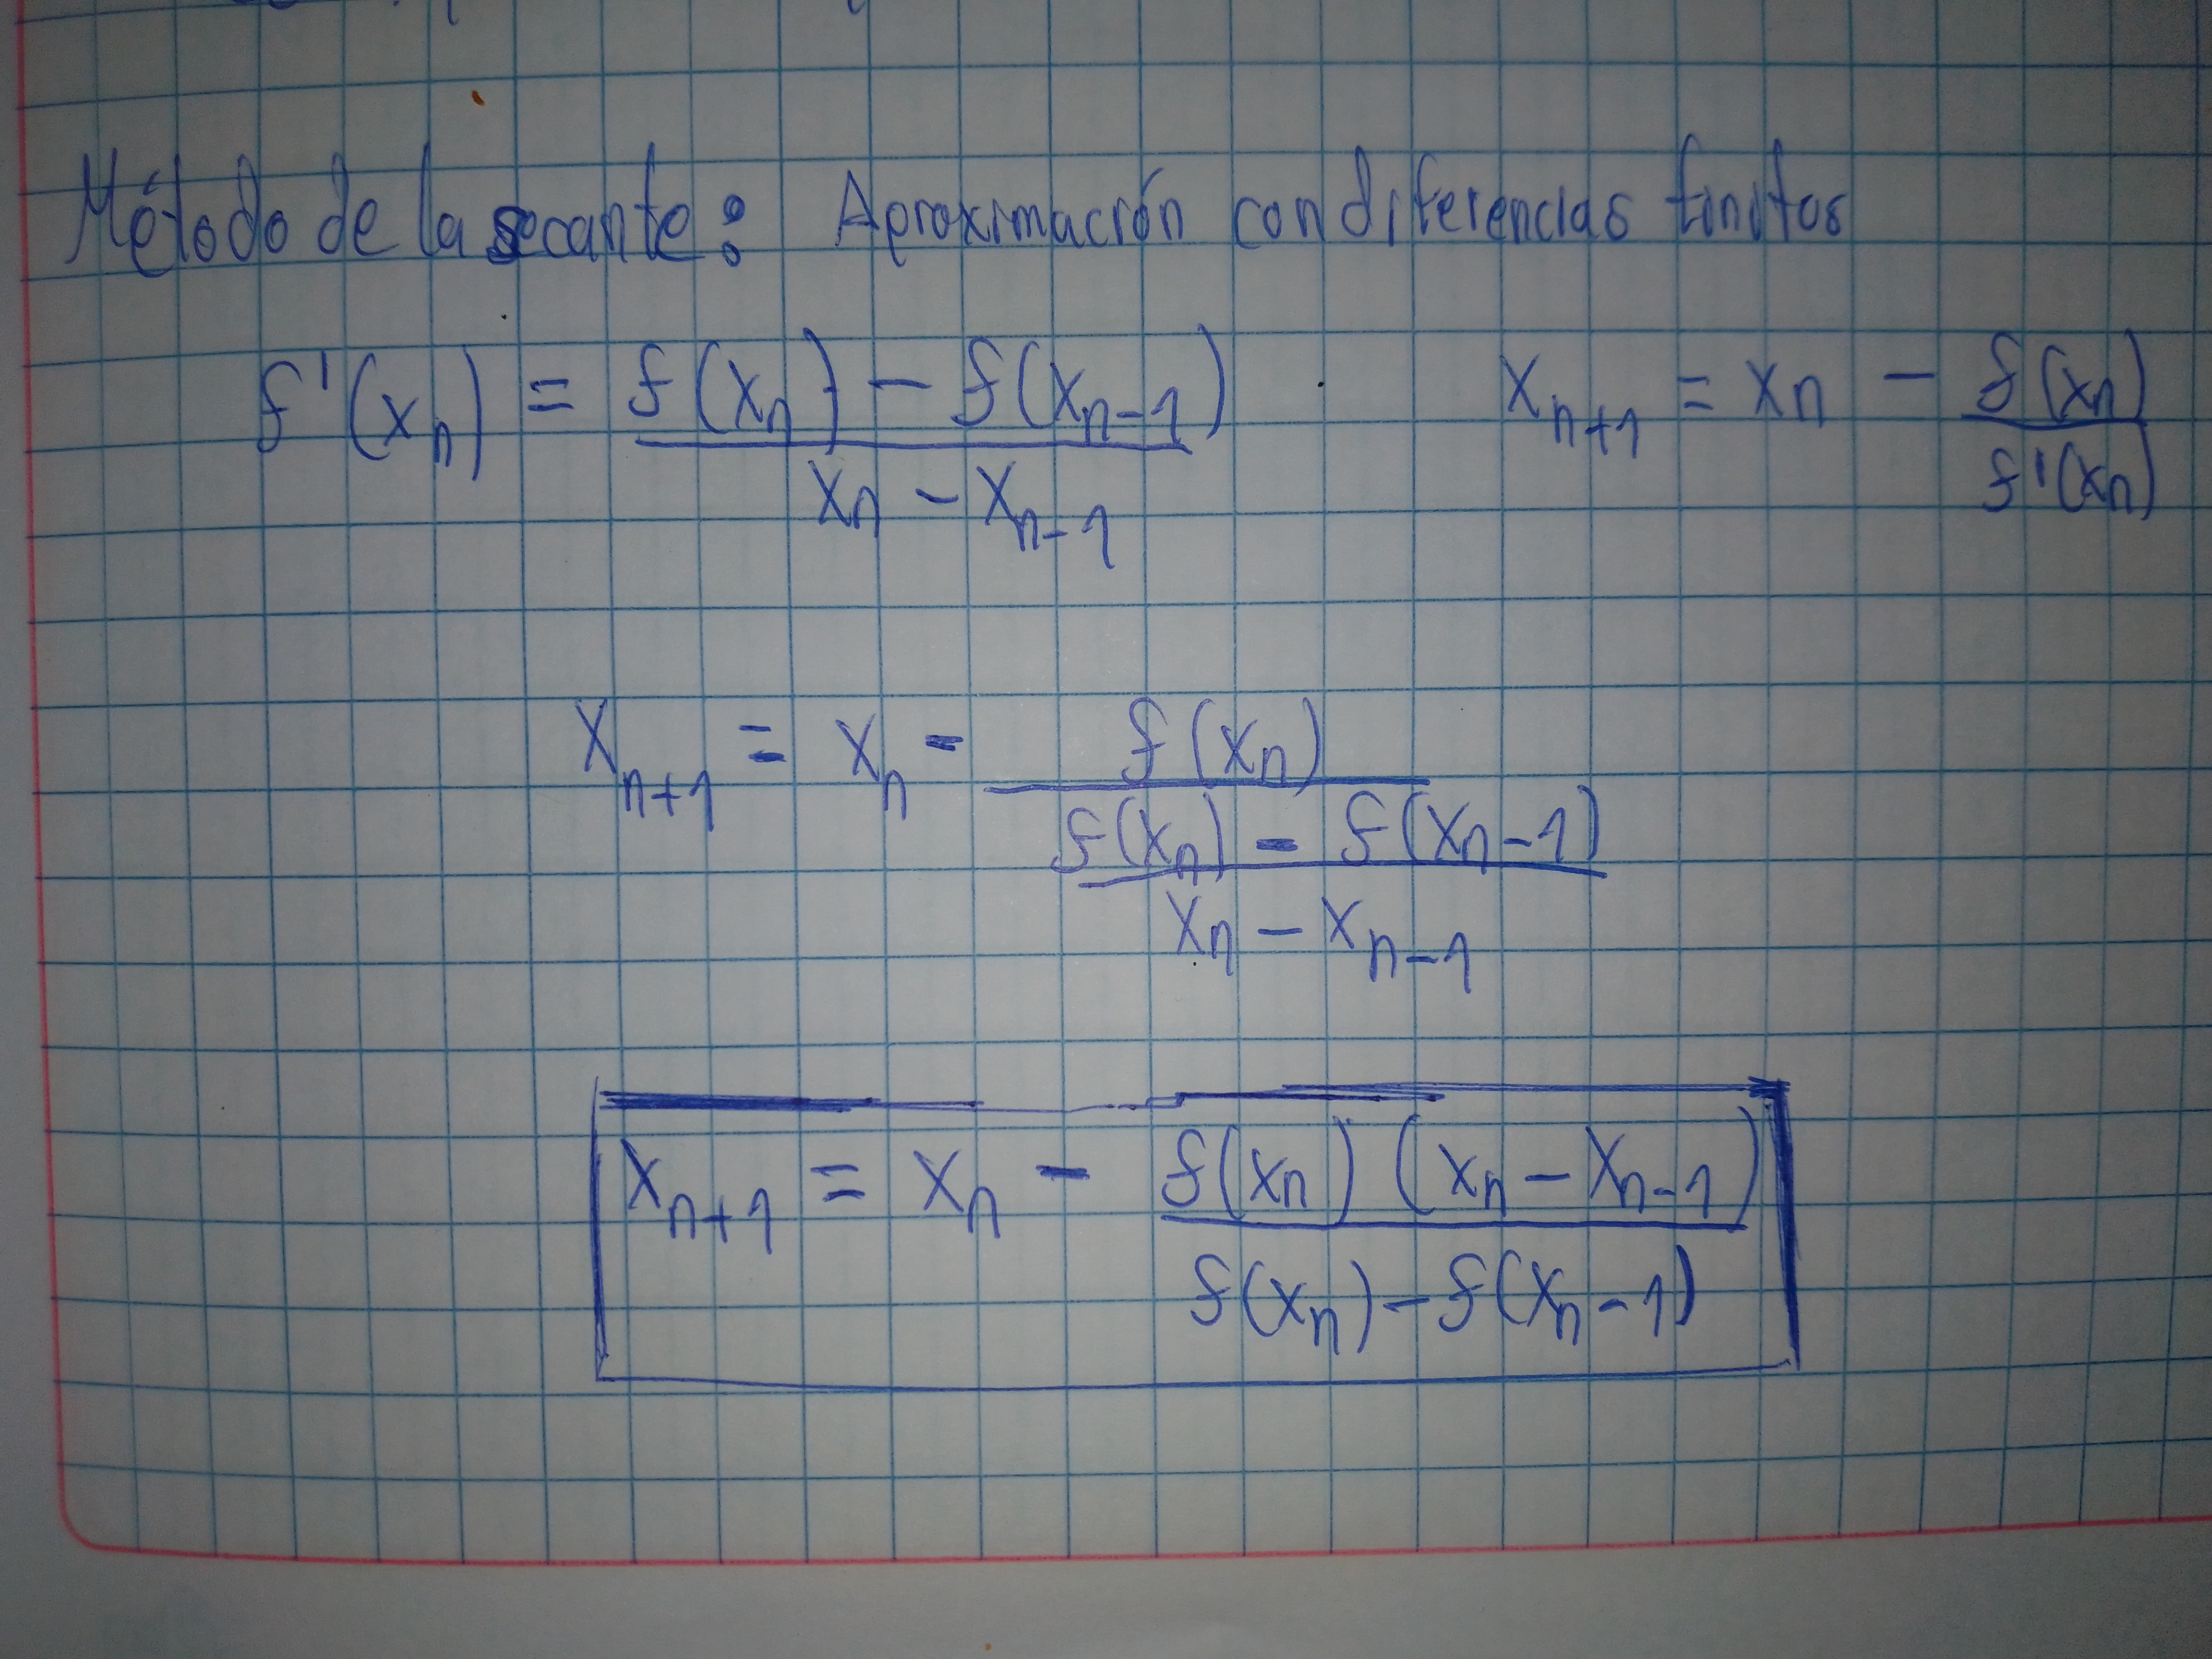 Método de la secante: Aproximación con diferencias finitas
f'(xₙ) = (f(xₙ) - f(xₙ₋₁)) / (xₙ - xₙ₋₁)    xₙ₊₁ = xₙ - f(xₙ) / f'(xₙ)
xₙ₊₁ = xₙ - f(xₙ) / ((f(xₙ) - f(xₙ₋₁)) / (xₙ - xₙ₋₁))
xₙ₊₁ = xₙ - (f(xₙ) (xₙ - xₙ₋₁)) / (f(xₙ) - f(xₙ₋₁))